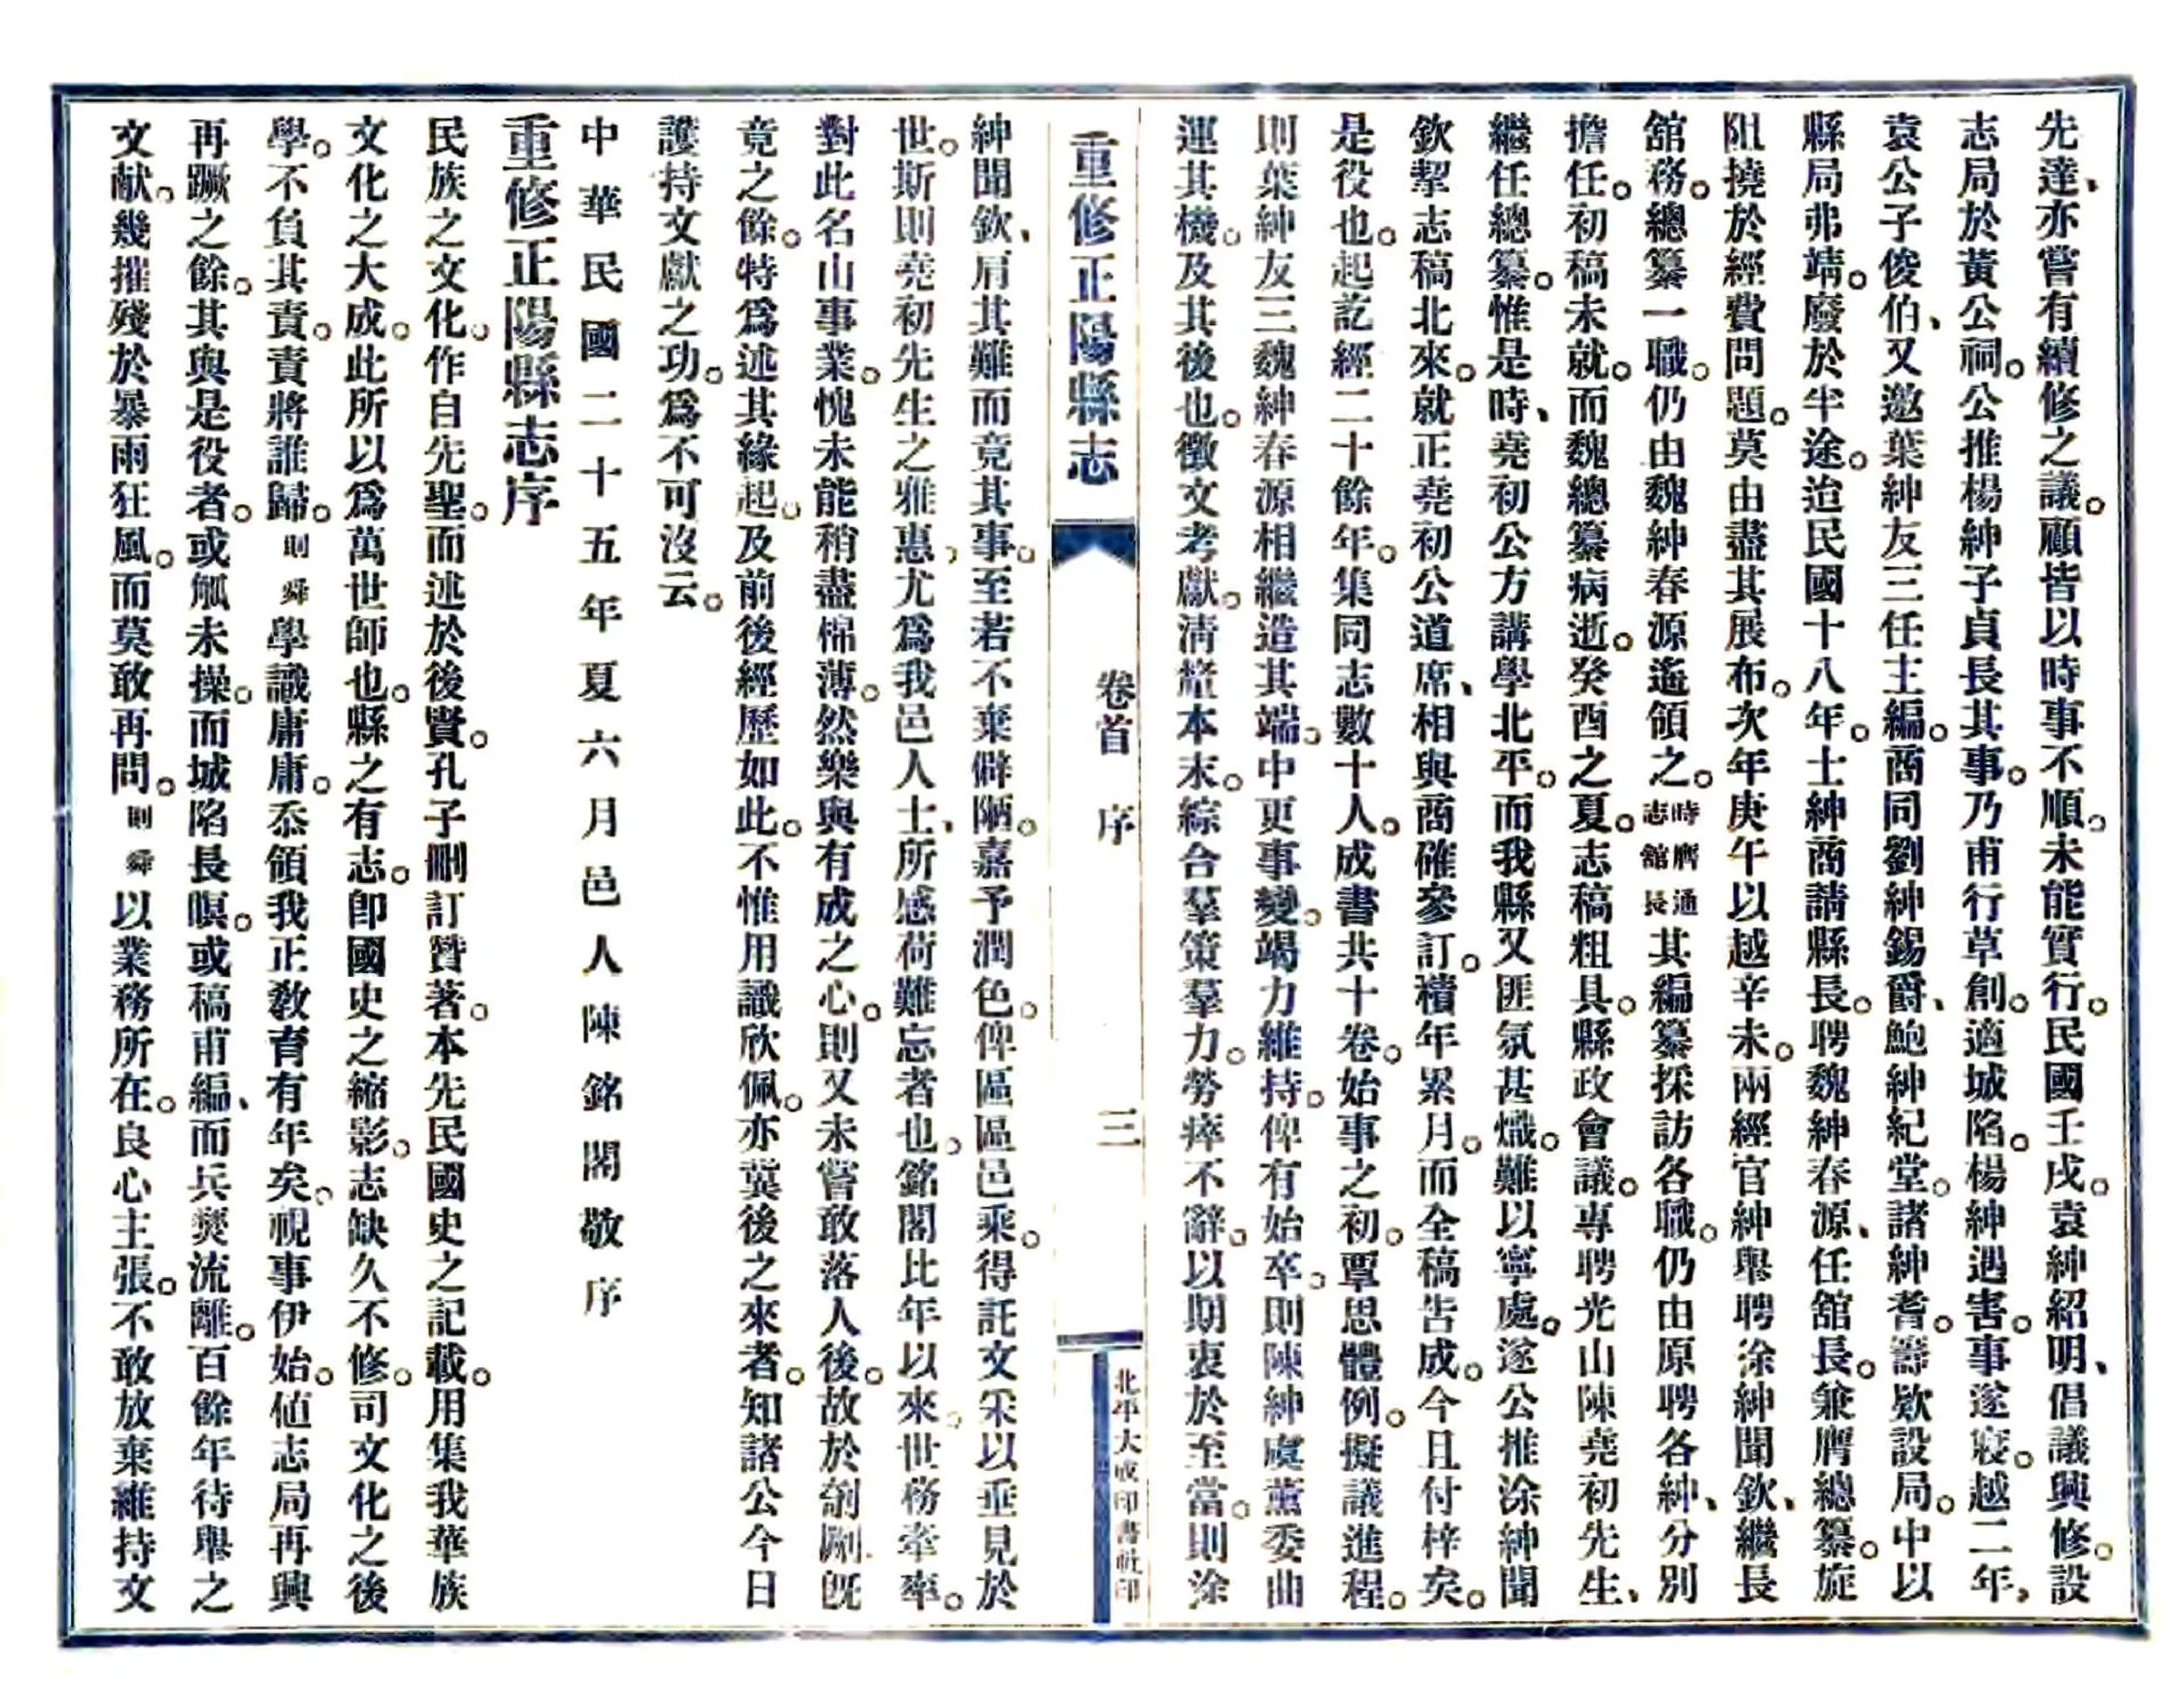 先達、亦嘗有續修之議。顧皆以時事不順。未能實行。民國壬戌。袁紳紹明、倡議興修。設
志局於黃公祠。公推楊紳子貞長其事。乃甫行草創。適城陷。楊紳遇害。事遂寢。越二年、
袁公子俊伯、又邀葉紳友三任主編。商同劉紳錫爵、鮑紳紀堂。諸紳耆。籌欵設局。中以
縣局弗靖。廢於半途。迨民國十八年。士紳商請縣長。聘魏紳春源、任舘長。兼膺總纂。旋
阻撓於經費問題。莫由盡其展布。次年庚午以越辛未。兩經官紳舉聘涂紳聞欽、繼長
舘務。總纂一職。仍由魏紳春源遙領之。時膺通志舘長其編纂採訪各職。仍由原聘各紳、分別
擔任。初稿未就。而魏總纂病逝。癸酉之夏。志稿粗具。縣政會議。專聘光山陳堯初先生、
繼任總纂。惟是時、堯初公方講學北平。而我縣又匪氛甚熾。難以寧處。遂公推涂紳聞
欽挈志稿北來。就正堯初公道席、相與商確參訂。積年累月。而全稿告成。今且付梓矣。
是役也。起訖經二十餘年。集同志數十人。成書共十卷。始事之初。覃思體例。擬議進程。
則葉紳友三魏紳春源相繼造其端。中更事變。竭力維持。俾有始卒。則陳紳虞薰委曲
運其機。及其後也。徵文考獻。淸釐本末。綜合羣策羣力。勞瘁不辭。以期衷於至當。則涂
重修正陽縣志
卷首 序
三
北平大成印書社印
紳聞欽、肩其難而竟其事。至若不棄僻陋。嘉予潤色。俾區區邑乘。得託文采以垂見於
世。斯則堯初先生之雅惠、尤爲我邑人士、所感荷難忘者也。銘閣比年以來。世務牽率。
對此名山事業。愧未能稍盡棉薄。然樂與有成之心。則又未嘗敢落人後。故於剞劂旣
竟之餘。特爲述其緣起。及前後經歷如此。不惟用識欣佩。亦冀後之來者。知諸公今日
護持文獻之功。爲不可沒云。
中華民國二十五年夏六月邑人陳銘閣敬序
重修正陽縣志序
民族之文化。作自先聖。而述於後賢。孔子刪訂贊著。本先民國史之記載。用集我華族
文化之大成。此所以爲萬世師也。縣之有志。卽國史之縮影。志缺久不修。司文化之後
學。不負其責。責將誰歸。則舜學識庸庸。忝領我正敎育有年矣。視事伊始。値志局再興
再蹶之餘。其與是役者。或觚未操。而城陷長暝。或稿甫編、而兵燹流離。百餘年待舉之
文献。幾摧殘於暴雨狂風。而莫敢再問。則舜以業務所在。良心主張。不敢放棄維持文